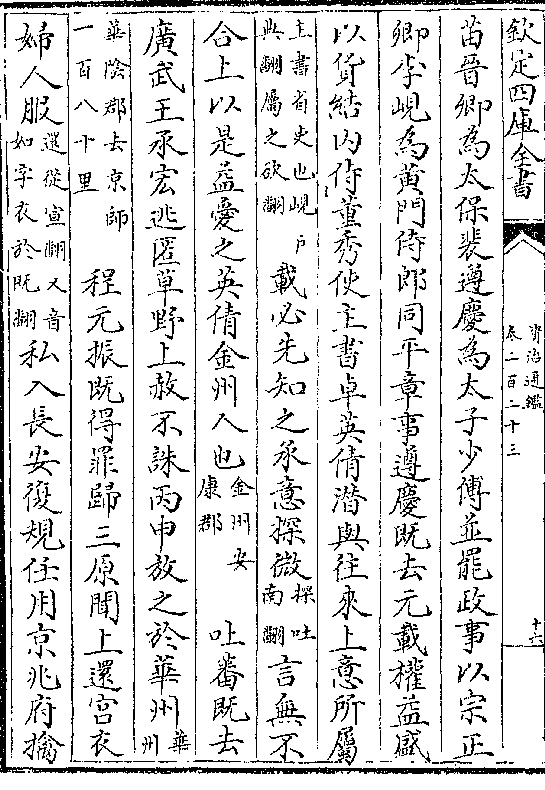 欽定四庫全書
資治通鑑
卷二百二十三
十六
苗晉卿為太保裴遵慶為太子少傅並罷政事以宗正
卿李峴為黄門侍郎同平章事遵慶既去元載權益盛
以貨結内侍董秀使主書卓英倩潛與往來上意所屬
主書省史也峴户
典翻屬之欲翻
載必先知之承意探微
探吐
南翻
言無不
合上以是益愛之英倩金州人也
金州安
康郡
吐蕃既去
廣武王承宏逃匿草野上赦不誅丙申放之於華州
華
州
華隂郡去京師
一百八十里
程元振既得罪歸三原聞上還宫衣
婦人服
還從宣翻又音
如字衣於既翻
私入長安復規任用京兆府擒